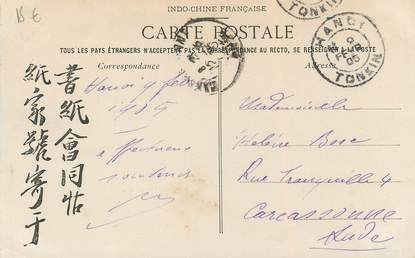 15 €
INDO-CHINE FRANÇAISE
CARTE POSTALE
TOUS LES PAYS ÉTRANGERS N'ACCEPTENT PAS LA CORRESPONDANCE AU RECTO, SE RENSEIGNER A LA POSTE
Correspondance
Hanoi 9 fév
1905
affectueux
書紙會同帖
紙家號寄于
Adresse
Mademoiselle
Rue Tranquille 4
Carcassonne
Aude
TONKIN
HANOI
TONKIN